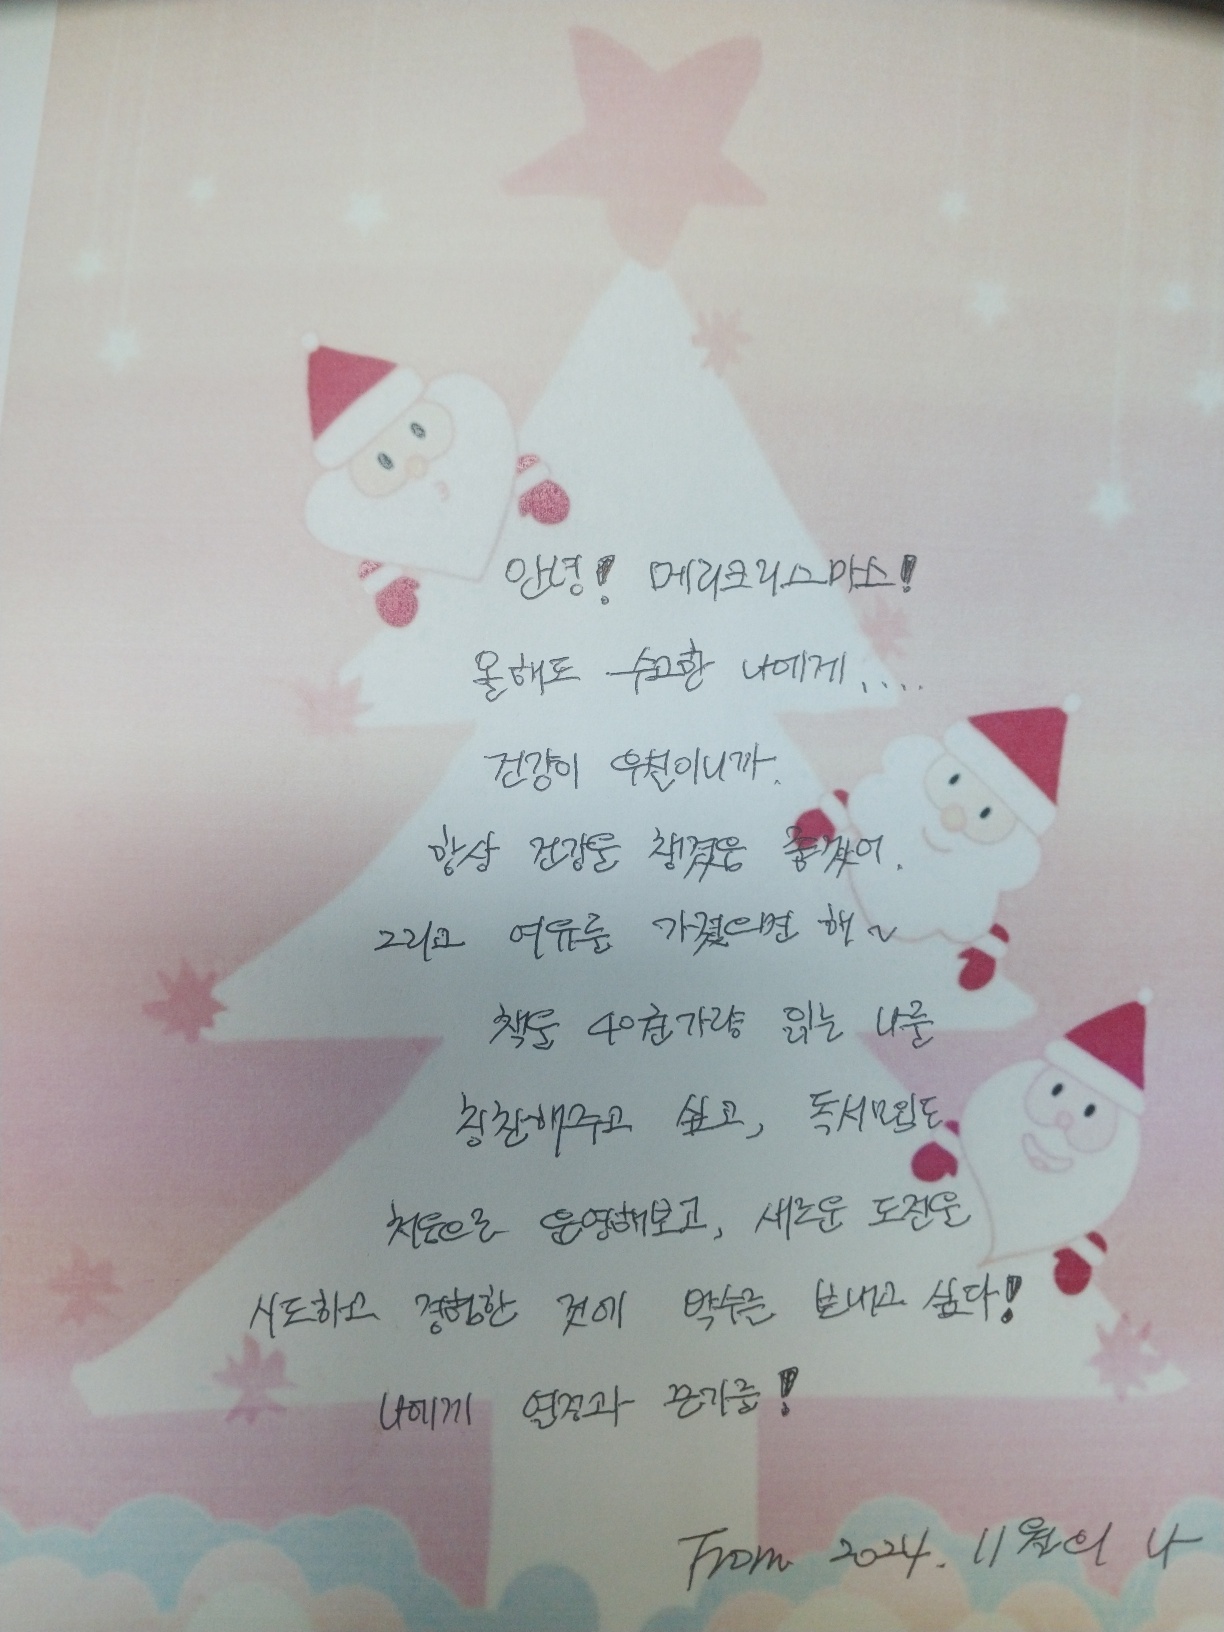 안녕! 메리크리스마스!
올해도 수고한 나에게....
건강이 우선이니까.
항상 건강을 챙겼음 좋겠어.
그리고 여유를 가졌으면 해~
책을 40권가량 읽는 나를
칭찬해주고 싶고, 독서모임도
처음으로 운영해보고, 새로운 도전을
시도하고 경험한 것에 박수를 보내고 싶다!
나에게 열정과 끈기를!
From 2024. 11월의 나